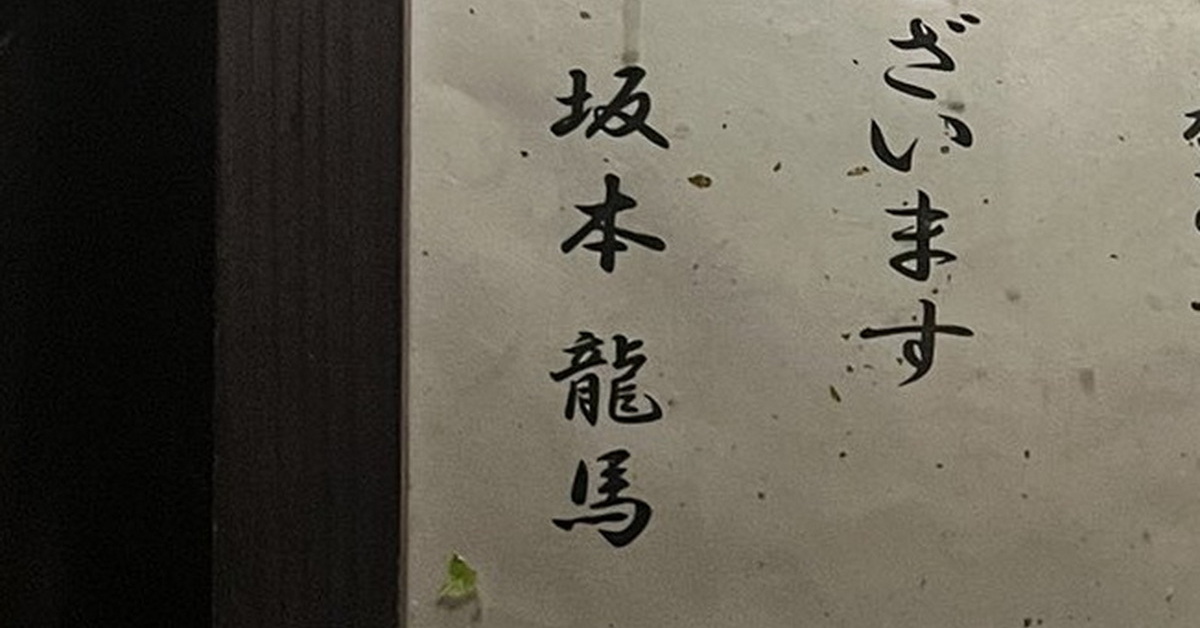 ざいます
坂本 龍馬